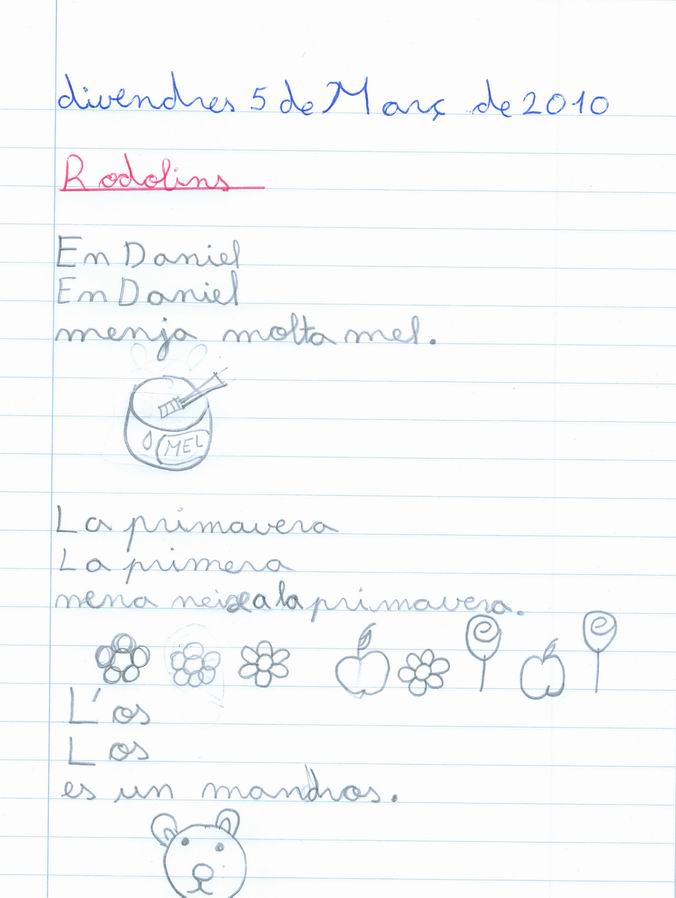 divendres 5 de Març de 2010
Rodolins
En Daniel
En Daniel
menja molta mel.
MEL
La primavera
La primera
nena neixe a la primavera.
L'os
L os
es un mandros.